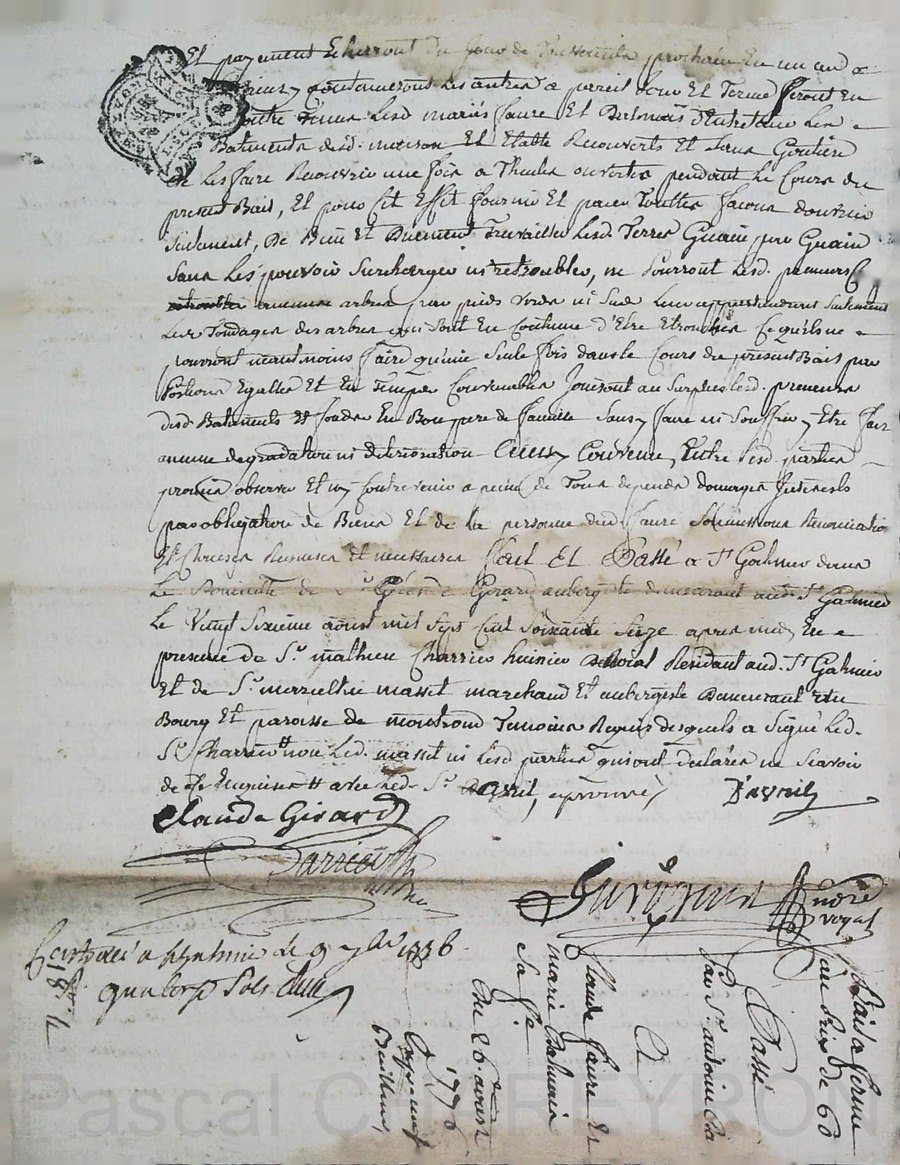 Et payement Echerront du jour de Toussaints prochain En un an &
ainsy Continueront les autres a pareil jour Et Terme Seront En
outre Tenus Lesd. mariés faure Et Balmais d'Entretenir Les
Batiments desd. maison Et Etable Recouverts Et sans Goutiere
de Les faire Recouvrir une fois a Thuiles ouvertes pendant Le Cours du
present Bail, Et pour cet Effet fournir Et paier Touttes facons d'ouvrier
Seulement, De Bien Et Duement Travailler Lesd. Terres Guain par Guain
Sans Les pouvoir Surcharger ni retroubler, ne Pourront Lesd. preneurs
aucuns arbres par pieds verds ni Secs Leur appartiendront Seulement
Les Tondages des arbres qui sont En Coutume d'Etre Etronchés Ce qu'ils ne
pourront neantmoins faire qu'une Seule fois dans le Cours du present Bail par
Portions Egalles Et En Temps Convenables Jouiront au Surplus lesd. preneurs
desd. Batiments Et fonds En Bon pere de famille Sans y faire ni Souffrir y Etre fait
aucune degradation ni deterioration Ainsy Convenu Entre Lesd. parties
promis observer Et n'y Contrevenir a peine de Tous depends domages Interests
par obligation de Biens Et de la personne dud. faure Soumissions Renonciation
Et Clauses Requises et necessaires fait Et Passé a St. Galmier dans
Le Domicille de Sr. Girard aubergiste demeurant aud. St. Galmier
Le Vingt Sixieme aoust mil Sept Cent Soixante Seize apres midy En
presence de Sr. mathieu Charrier huissier Roial Residant aud. St. Galmier
Et de Sr. massit marchand Et aubergiste Demeurant du
Bourg Et paroisse de montrond Temoins Requis desquels a Signé Led.
Sr. Charrier non Led. massit ni lesd. parties qui ont declarés ne Scavoir
de ce Enquises avec led. Sr. avril, aprouvé
D'avril
Claude Girard
Charrier
nore
royal
a St. Galmier le 9 7bre 1776.
quatorze Sols
Bail a ferme
Sous Prix de 60
Passé
Par Sr. antoine
A
Claude faure Et
marie Balmais
Sa fe.
Du 26. aoust
1776
Pascal CHAREYRON